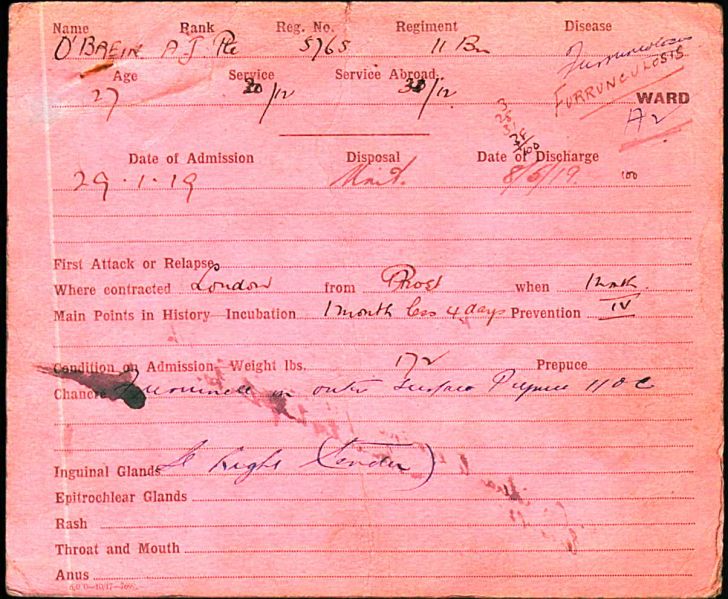 Name Rank Reg. No. Regiment Disease
O'BREIN A J Pte 5765 11 Bn Furrunculosis
Age Service Service Abroad
FURRUNCULOSIS
27 /12 /12 WARD
A2
Date of Admission Disposal Date of Discharge
29.1.19 Unit. 8/5/19. 100
First Attack or Relapse
Where contracted London from Prost when 1 month
Main Points in History—Incubation 1 month less 4 days Prevention IV
Condition on Admission—Weight lbs. 172 Prepuce
Chancre on outer Surface Prepuce 11 O C
Inguinal Glands Right (Tender)
Epitrochlear Glands
Rash
Throat and Mouth
Anus